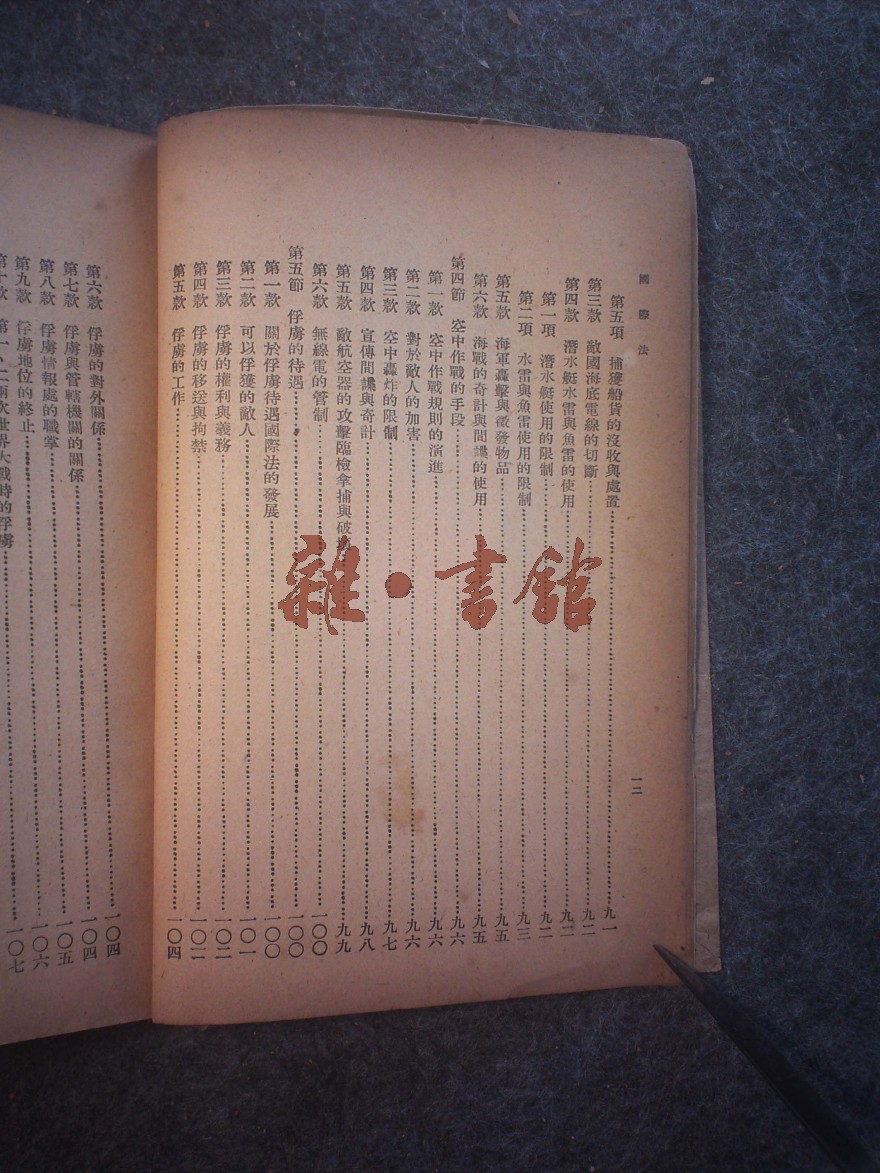 國際法
一二
第五項 捕獲船貨的沒收與處置……九一
第三款 敵國海底電線的切斷……九二
第四款 潛水艇水雷與魚雷的使用……九二
第一項 潛水艇使用的限制……九二
第二項 水雷與魚雷使用的限制……九三
第五款 海軍轟擊與徵發物品……九五
第六款 海戰的奇計與間諜的使用……九五
第四節 空中作戰的手段……九六
第一款 空中作戰規則的演進……九六
第二款 對於敵人的加害……九六
第三款 空中轟炸的限制……九七
第四款 宣傳間諜與奇計……九八
第五款 敵航空器的攻擊臨檢拿捕與破……九九
第六款 無線電的管制……一〇〇
第五節 俘虜的待遇……一〇〇
第一款 關於俘虜待遇國際法的發展……一〇〇
第二款 可以俘獲的敵人……一〇一
第三款 俘虜的權利與義務……一〇二
第四款 俘虜的移送與拘禁……一〇二
第五款 俘虜的工作……一〇四
第六款 俘虜的對外關係……一〇四
第七款 俘虜與管轄機關的關係……一〇四
第八款 俘虜情報處的職掌……一〇五
第九款 俘虜地位的終止……一〇六
第十款 第一、二兩次世界大戰時的俘虜……一〇七
雜·書館